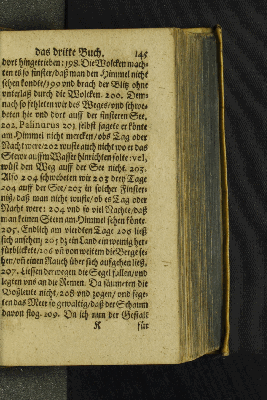 das dritte Buch. 145
dort hingetrieben: 198. Die Wolcken mach-
ten es so finster/ daß man den Himmel nicht
sehen kondte/ 199 und brach der Blitz ohne
unterlaß durch die Wolcken. 200. Dem-
nach so fehleten wir des Weges/ und schwe-
beten hie und dort auff der finsteren See.
202. Palinurus 201 selbst sagte er könte
am Himmel nicht mercken/ obs Tag oder
Nacht were/ 202 wuste auch nicht wo er das
Stewr auffm Wasser hinrichten solte: vel,
wüst den Weg auff der See nicht. 203.
Also 204 schwebeten wir 203 drey Tage
204 auff der See/ 203 in solcher Finster-
niß/ daß man nicht wuste/ ob es Tag oder
Nacht were: 204 und so viel Nachte/ daß
man keinen Stern am Himmel sehen könte.
205. Endlich am vierdten Tage 206 ließ
sich ansehen/ 205 dz ein Land ein wenig her-
fürblickett/ 206 uñ von weitem die Berge se-
hen/ uñ einen Rauch über sich aufgehen ließ.
207. Liessen derwegen die Segel fallen/ und
legten uns an die Remen. Da säumeten die
Boßleute nicht/ 208 und zogen/ und fege-
ten das Meer so gewaltig/ daß der Schaum
davon flog. 209. Da ich nun der Gestalt
K für